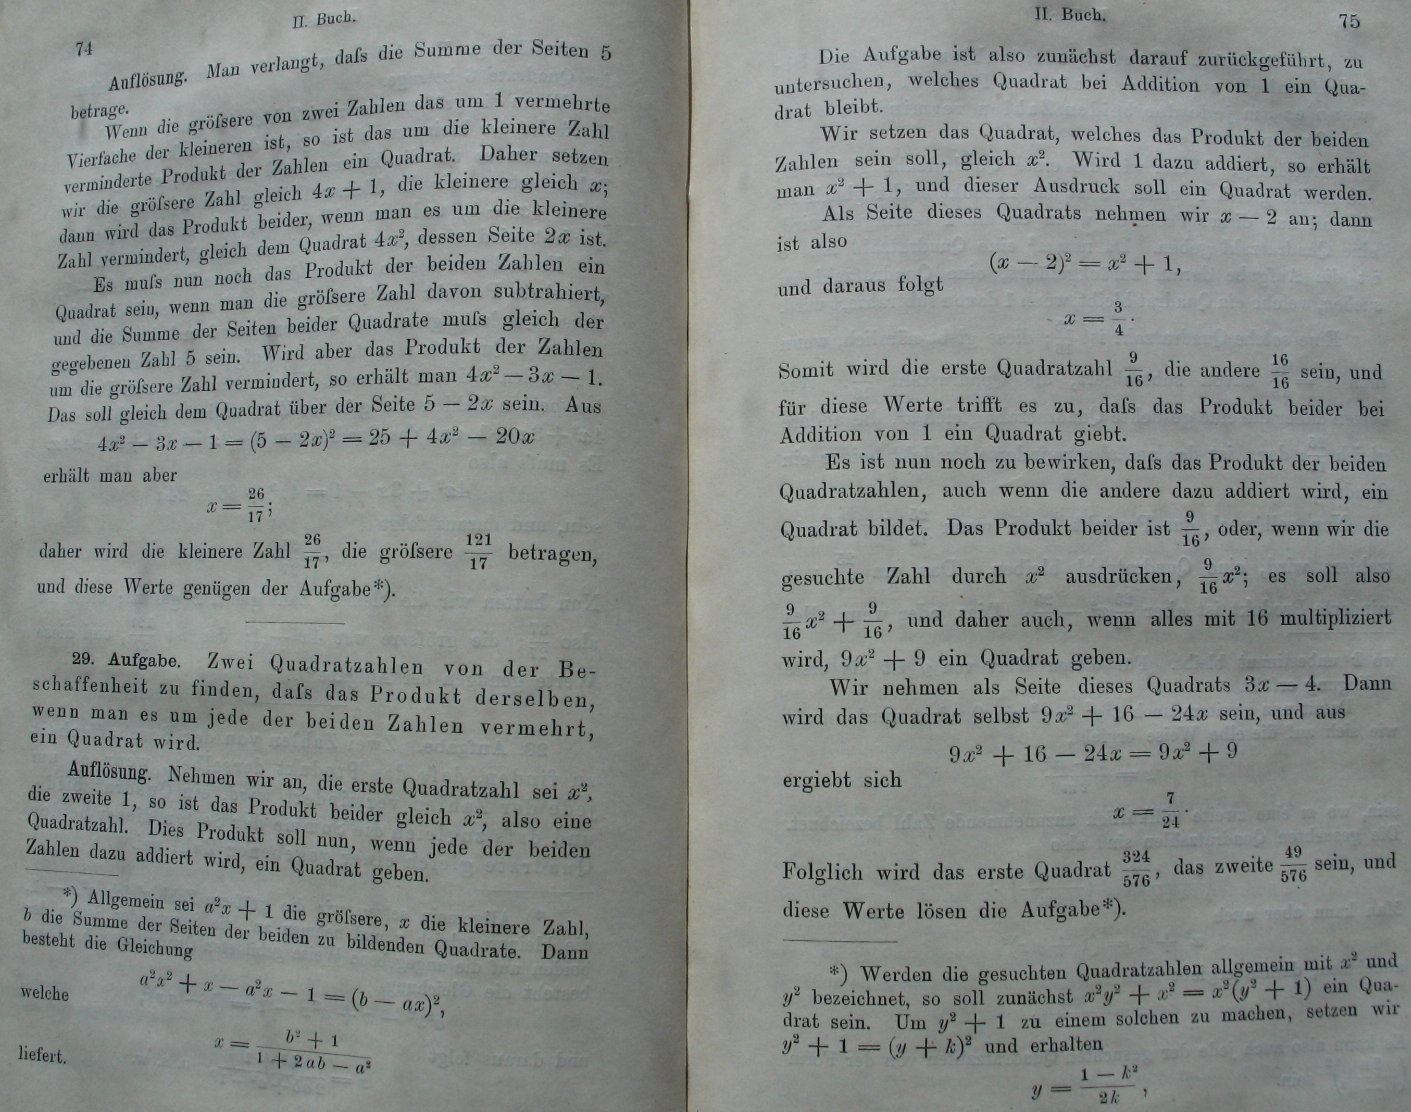 74
II. Buch.
Auflösung. Man verlangt, daſs die Summe der Seiten 5
betrage.
Wenn die gröſsere von zwei Zahlen das um 1 vermehrte
Vierfache der kleineren ist, so ist das um die kleinere Zahl
verminderte Produkt der Zahlen ein Quadrat. Daher setzen
wir die gröſsere Zahl gleich 4x + 1, die kleinere gleich x;
dann wird das Produkt beider, wenn man es um die kleinere
Zahl vermindert, gleich dem Quadrat 4x², dessen Seite 2x ist.
Es muſs nun noch das Produkt der beiden Zahlen ein
Quadrat sein, wenn man die gröſsere Zahl davon subtrahiert,
und die Summe der Seiten beider Quadrate muſs gleich der
gegebenen Zahl 5 sein. Wird aber das Produkt der Zahlen
um die gröſsere Zahl vermindert, so erhält man 4x² — 3x — 1.
Das soll gleich dem Quadrat über der Seite 5 — 2x sein. Aus
4x² — 3x — 1 = (5 — 2x)² = 25 + 4x² — 20x
erhält man aber
x = 26/17;
daher wird die kleinere Zahl 26/17, die gröſsere 121/17 betragen,
und diese Werte genügen der Aufgabe*).
29. Aufgabe. Zwei Quadratzahlen von der Be-
schaffenheit zu finden, daſs das Produkt derselben,
wenn man es um jede der beiden Zahlen vermehrt,
ein Quadrat wird.
Auflösung. Nehmen wir an, die erste Quadratzahl sei x²,
die zweite 1, so ist das Produkt beider gleich x², also eine
Quadratzahl. Dies Produkt soll nun, wenn jede der beiden
Zahlen dazu addiert wird, ein Quadrat geben.
*) Allgemein sei a²x + 1 die gröſsere, x die kleinere Zahl,
b die Summe der Seiten der beiden zu bildenden Quadrate. Dann
besteht die Gleichung
a²x² + x — a²x — 1 = (b — ax)²,
welche
x = (b² + 1)/(1 + 2ab — a²)
liefert.
II. Buch.
75
Die Aufgabe ist also zunächst darauf zurückgeführt, zu
untersuchen, welches Quadrat bei Addition von 1 ein Qua-
drat bleibt.
Wir setzen das Quadrat, welches das Produkt der beiden
Zahlen sein soll, gleich x². Wird 1 dazu addiert, so erhält
man x² + 1, und dieser Ausdruck soll ein Quadrat werden.
Als Seite dieses Quadrats nehmen wir x — 2 an; dann
ist also
(x — 2)² = x² + 1,
und daraus folgt
x = 3/4.
Somit wird die erste Quadratzahl 9/16, die andere 16/16 sein, und
für diese Werte trifft es zu, daſs das Produkt beider bei
Addition von 1 ein Quadrat giebt.
Es ist nun noch zu bewirken, daſs das Produkt der beiden
Quadratzahlen, auch wenn die andere dazu addiert wird, ein
Quadrat bildet. Das Produkt beider ist 9/16, oder, wenn wir die
gesuchte Zahl durch x² ausdrücken, 9/16 x²; es soll also
9/16 x² + 9/16, und daher auch, wenn alles mit 16 multipliziert
wird, 9x² + 9 ein Quadrat geben.
Wir nehmen als Seite dieses Quadrats 3x — 4. Dann
wird das Quadrat selbst 9x² + 16 — 24x sein, und aus
9x² + 16 — 24x = 9x² + 9
ergiebt sich
x = 7/24.
Folglich wird das erste Quadrat 324/576, das zweite 49/576 sein, und
diese Werte lösen die Aufgabe*).
*) Werden die gesuchten Quadratzahlen allgemein mit x² und
y² bezeichnet, so soll zunächst x²y² + x² = x²(y² + 1) ein Qua-
drat sein. Um y² + 1 zu einem solchen zu machen, setzen wir
y² + 1 = (y + k)² und erhalten
y = (1 — k²)/2k,